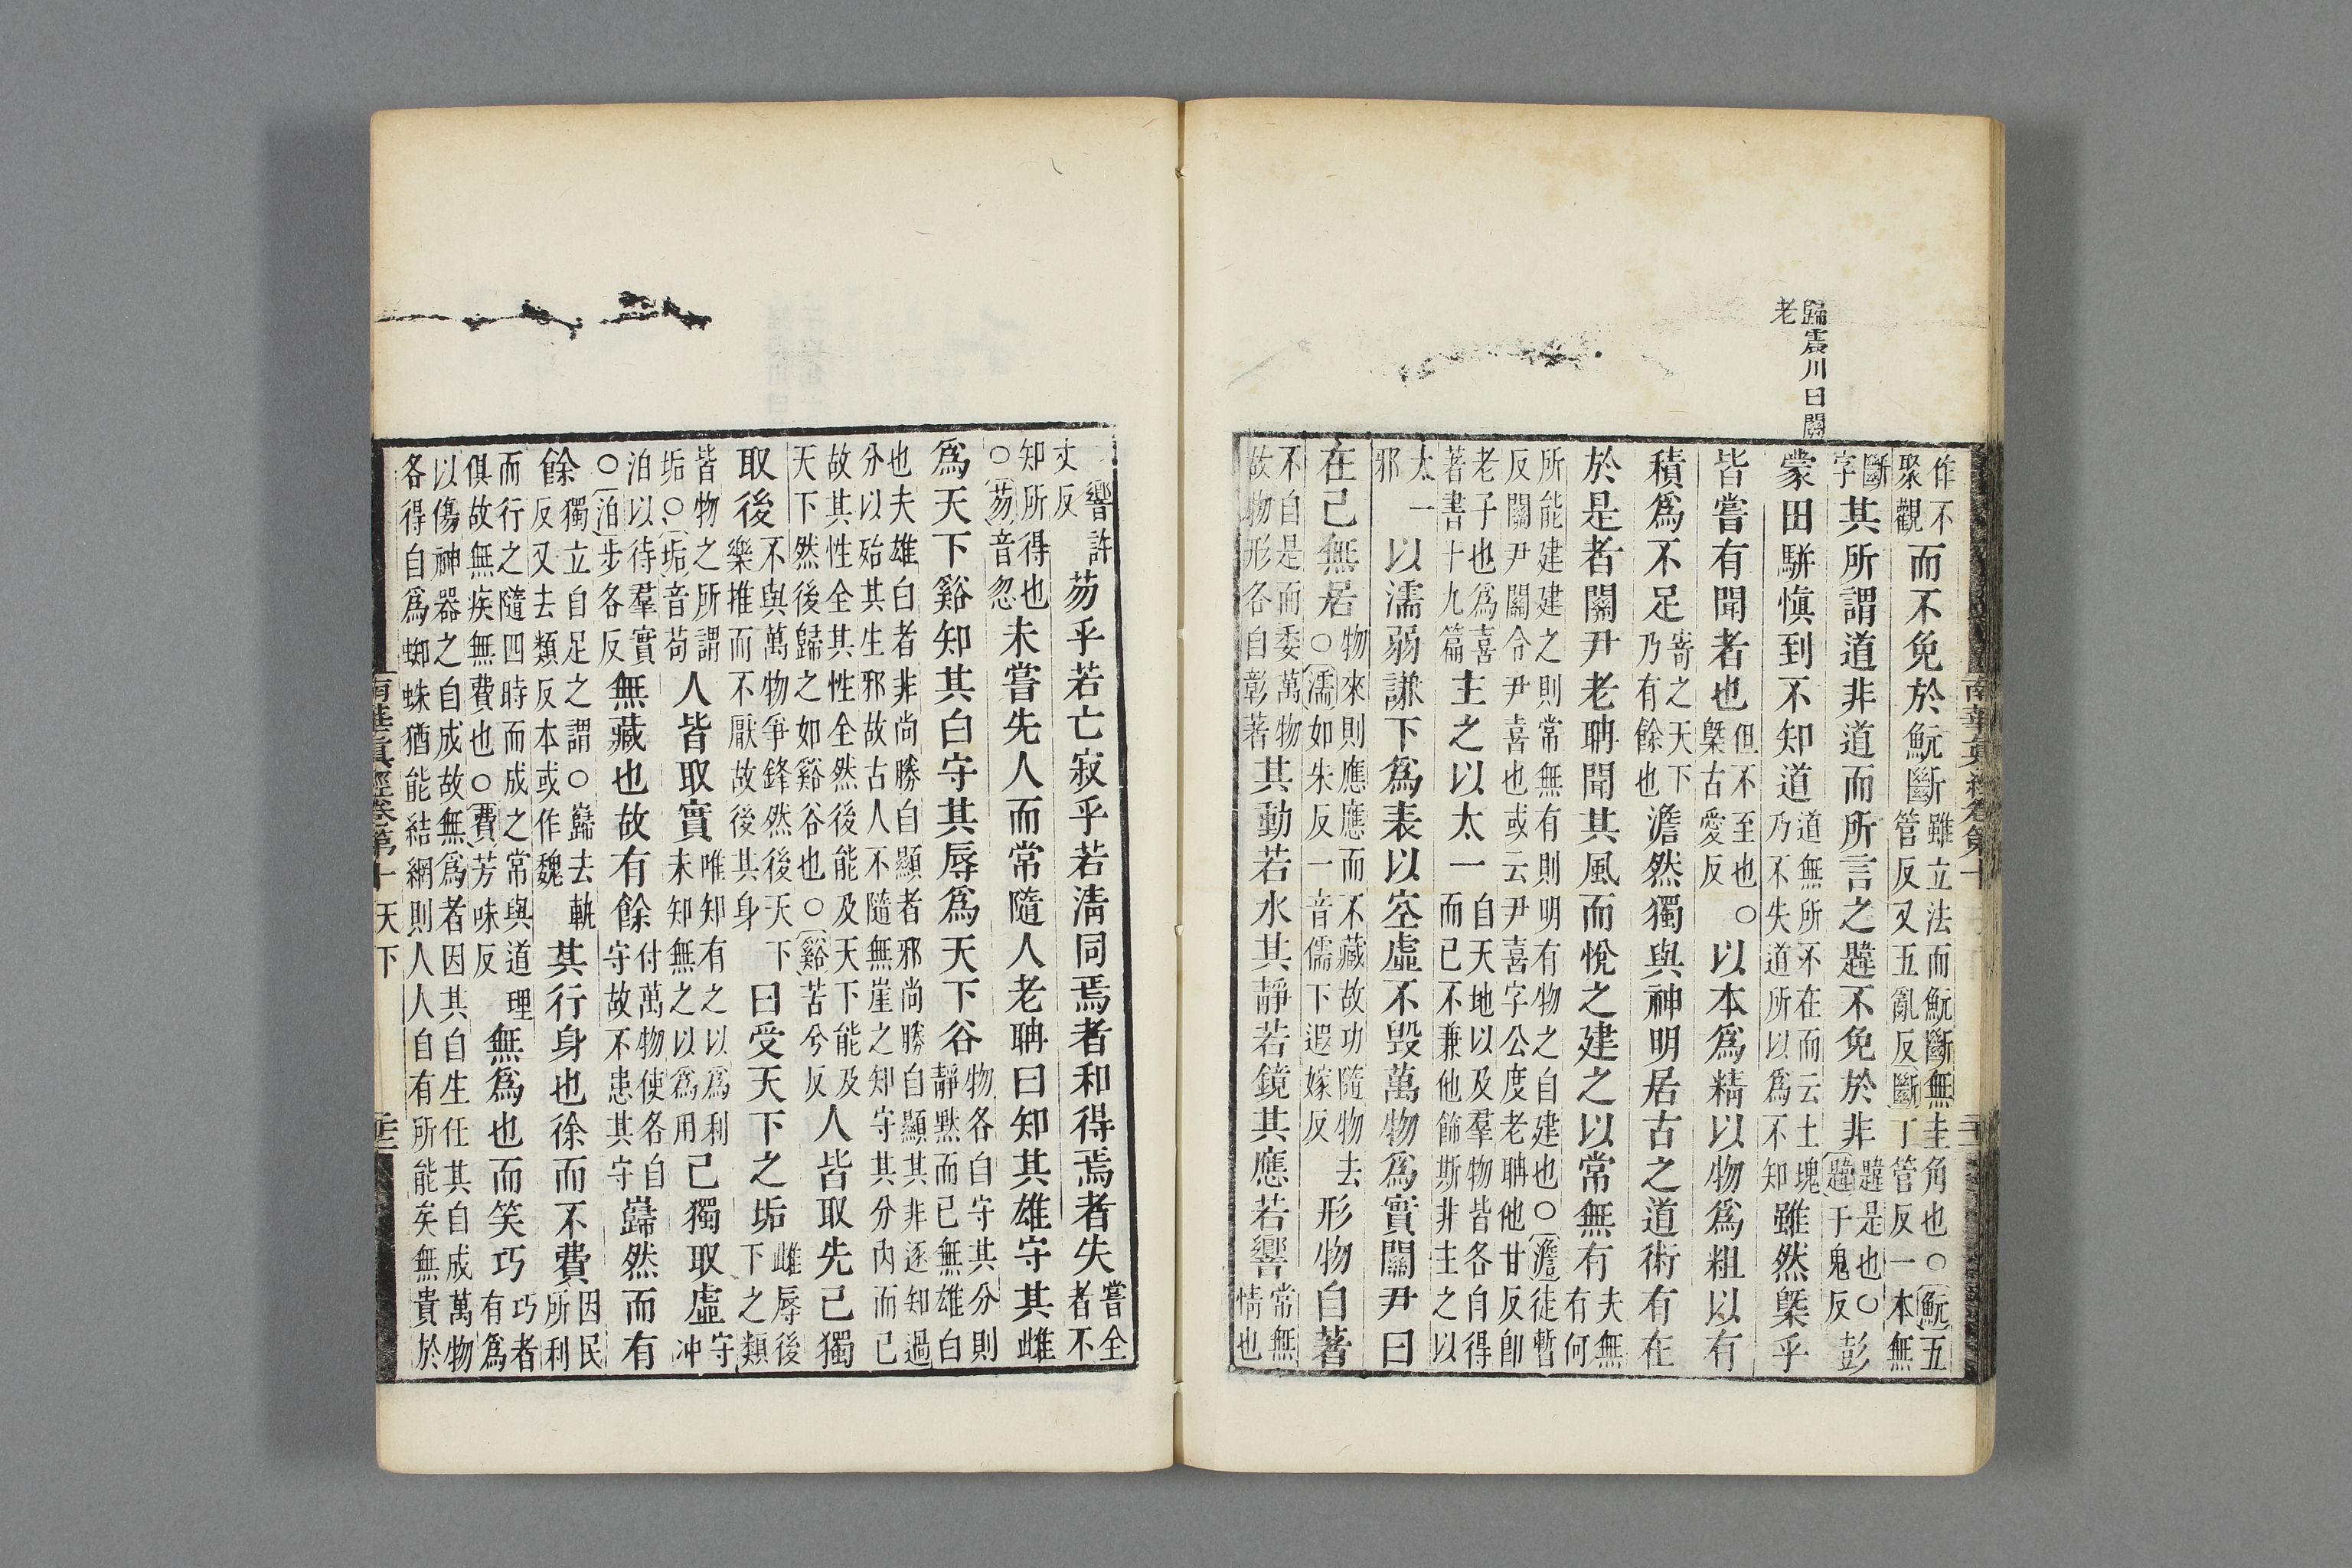 歸震川曰關
老
南華真經卷第十
作不聚觀而不免於魭斷雖立法而魭斷無圭角也○魭五管反又五亂反斷丁管反一本無
斷字其所謂道非道而所言之韙不免於非韙是也○韙于鬼反彭
蒙田駢慎到不知道道無所不在而云土塊乃不失道所以爲不知雖然槩乎
皆嘗有聞者也但不至也○槩古愛反以本爲精以物爲粗以有
積爲不足寄之天下乃有餘也澹然獨與神明居古之道術有在
於是者關尹老聃聞其風而悅之建之以常無有夫無有何
所能建建之則常無有則明有物之自建也○澹徒暫反關尹關令尹喜也或云尹喜字公度老聃他甘反卽
老子也爲喜著書十九篇主之以太一自天地以及羣物皆各自得而已不兼他飾斯非主之以
太一邪以濡弱謙下爲表以空虛不毀萬物爲實關尹曰
在己無居物來則應應而不藏故功隨物去○濡如朱反一音儒下遐嫁反形物自著
不自是而委萬物故物形各自彰著其動若水其靜若鏡其應若響常無情也
響許丈反芴乎若亡寂乎若清同焉者和得焉者失嘗全者不
知所得也○芴音忽未嘗先人而常隨人老聃曰知其雄守其雌
爲天下谿知其白守其辱爲天下谷物各自守其分則靜默而已無雄白
也夫雄白者非尚勝自顯者邪尚勝自顯其非逐知過分以殆其生邪故古人不隨無崖之知守其分內而已
故其性全其性全然後能及天下能及天下然後歸之如谿谷也○谿苦兮反人皆取先己獨
取後不與萬物爭鋒然後天下樂推而不厭故後其身曰受天下之垢雌辱後下之類
皆物之所謂垢○垢音苟人皆取實唯知有之以爲利未知無之以爲用己獨取虛守冲
泊以待羣實○泊步各反無藏也故有餘付萬物使各自守故不患其守巋然而有
餘獨立自足之謂○巋去軌反又去類反本或作魏其行身也徐而不費因民所利
而行之隨四時而成之常與道理俱故無疾無費也○費芳味反無爲也而笑巧巧者有爲
以傷神器之自成故無爲者因其自生任其自成萬物各得自爲蜘蛛猶能結網則人人自有所能矣無貴於
南華眞經卷第十 天下